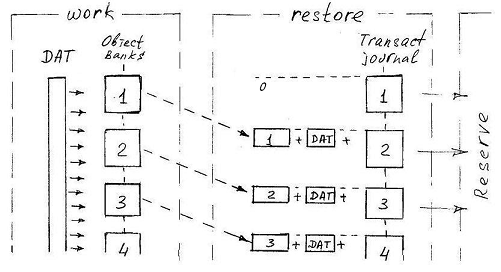 work
restore
DAT
Object
Banks
Transact
journal
1
0
1
2
1 + DAT +
2
3
2 + DAT +
3
4
3 + DAT +
4
Reserve